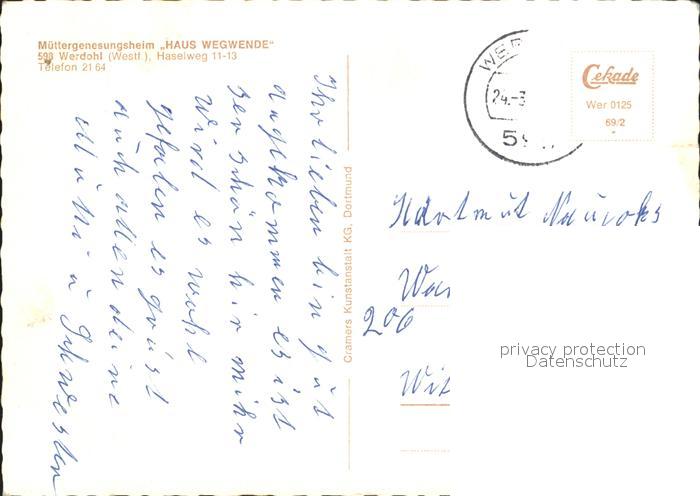 Müttergenesungsheim „HAUS WEGWENDE"
598 Werdohl (Westf.), Haselweg 11-13
Telefon 21 64
Ihr lieben bin gut
angekommen es ist
ser schön hir mihr
wird es wohl
gefalen es grüst
auch allen deine
Mutti u Schwester
Cramers Kunstanstalt KG, Dortmund
24.-3
59
Cekade
Wer 0125
69/2
Hartmut
206
Wit
privacy protection
Datenschutz